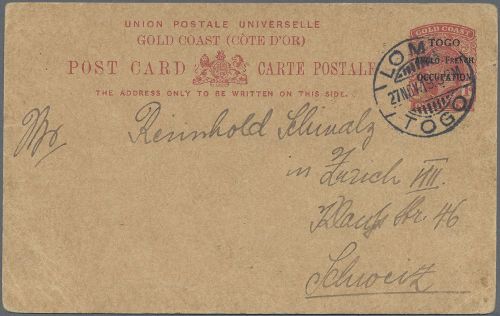 UNION POSTALE UNIVERSELLE
GOLD COAST (CÔTE D'OR)
POST CARD CARTE POSTALE
THE ADDRESS ONLY TO BE WRITTEN ON THIS SIDE.
GOLD COAST
TOGO
ANGLO-FRENCH
OCCUPATION
LOME
TOGO
Reinnhold Schmalz
in Zurich VIII
Str. 46
Schweiz